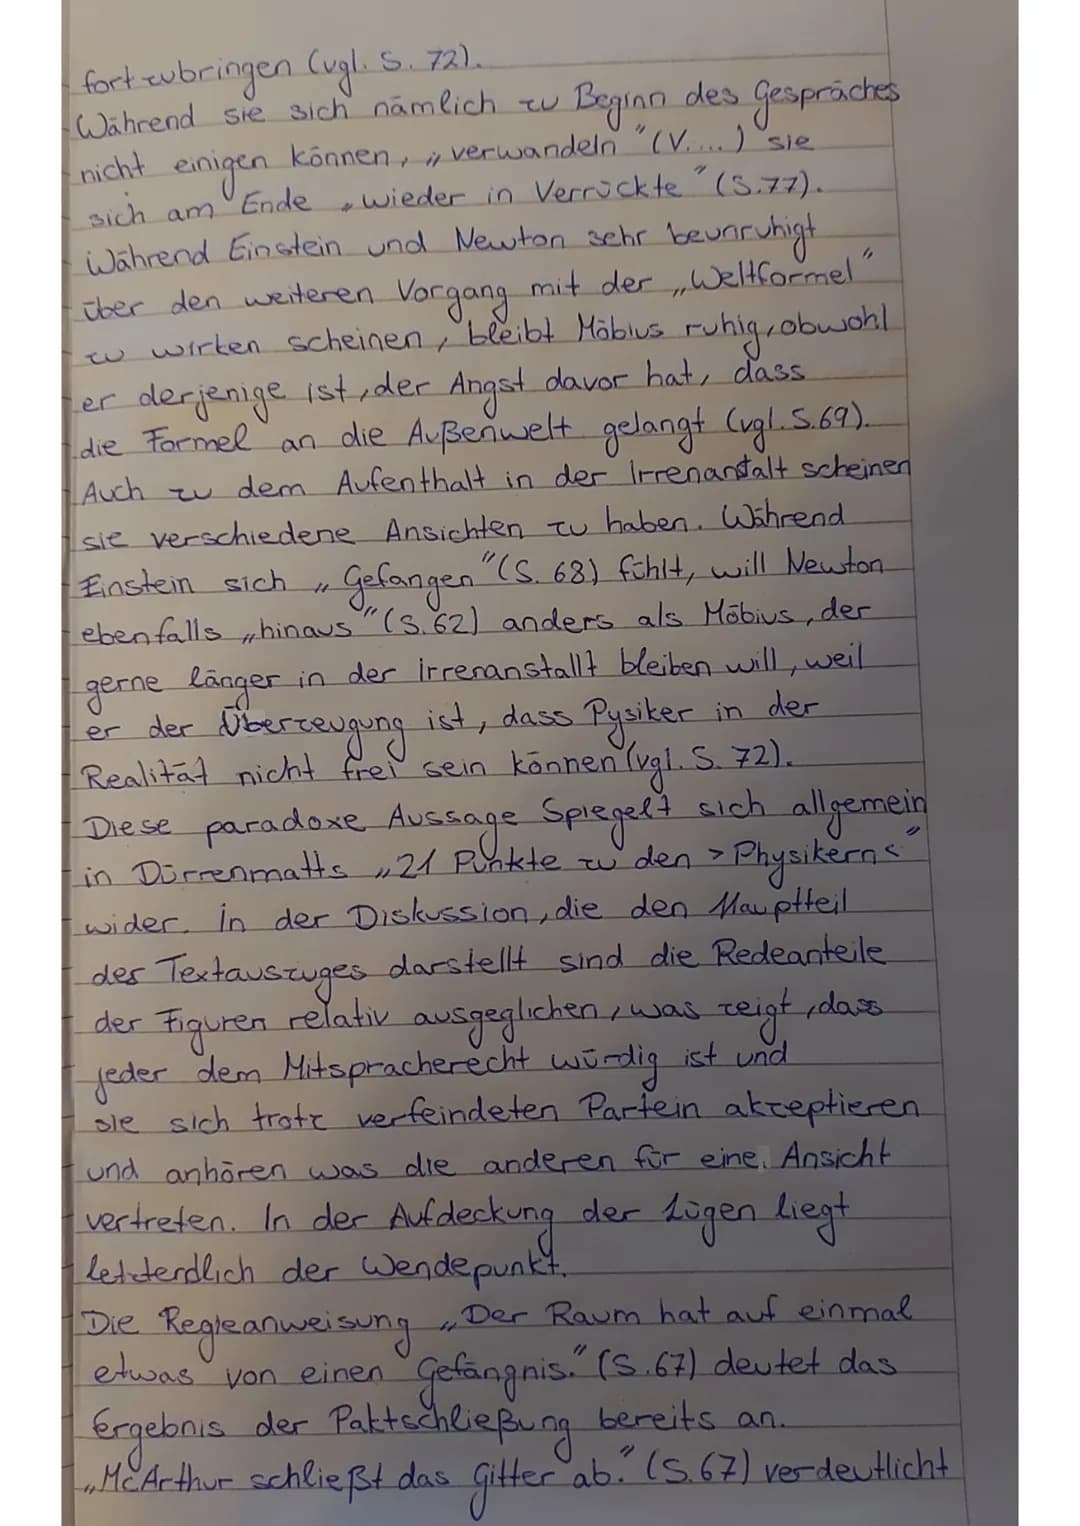 fortzubringen (vgl. S. 72).
Während sie sich nämlich zu Beginn des Gespräches
nicht einigen können, „verwandeln" (V....) sie
sich am Ende „wieder in Verrückte" (S.77).
Während Einstein und Newton sehr beunruhigt
über den weiteren Vorgang mit der „Weltformel"
zu wirken scheinen, bleibt Möbius ruhig, obwohl
er derjenige ist, der Angst davor hat, dass
die Formel an die Außenwelt gelangt (vgl. S.69).
Auch zu dem Aufenthalt in der Irrenanstalt scheinen
sie verschiedene Ansichten zu haben. Während
Einstein sich „Gefangen" (S. 68) fühlt, will Newton
ebenfalls „hinaus" (S.62) anders als Möbius, der
gerne länger in der irrenanstallt bleiben will, weil
er der Überzeugung ist, dass Pysiker in der
Realität nicht frei sein können (vgl. S. 72).
Diese paradoxe Aussage Spiegelt sich allgemein
in Dürrenmatts „21 Punkte zu den >Physikern<"
wider. in der Diskussion, die den Hauptteil
des Textauszuges darstellt sind die Redeanteile
der Figuren relativ ausgeglichen, was zeigt, dass
jeder dem Mitspracherecht würdig ist und
sie sich trotz verfeindeten Partein akzeptieren
und anhören was die anderen für eine Ansicht
vertreten. In der Aufdeckung der Lügen liegt
letzterdlich der Wendepunkt.
Die Regieanweisung „Der Raum hat auf einmal
etwas von einen Gefängnis." (S.67) deutet das
Ergebnis der Paktschließung bereits an.
„McArthur schließt das Gitter ab." (S.67) verdeutlicht